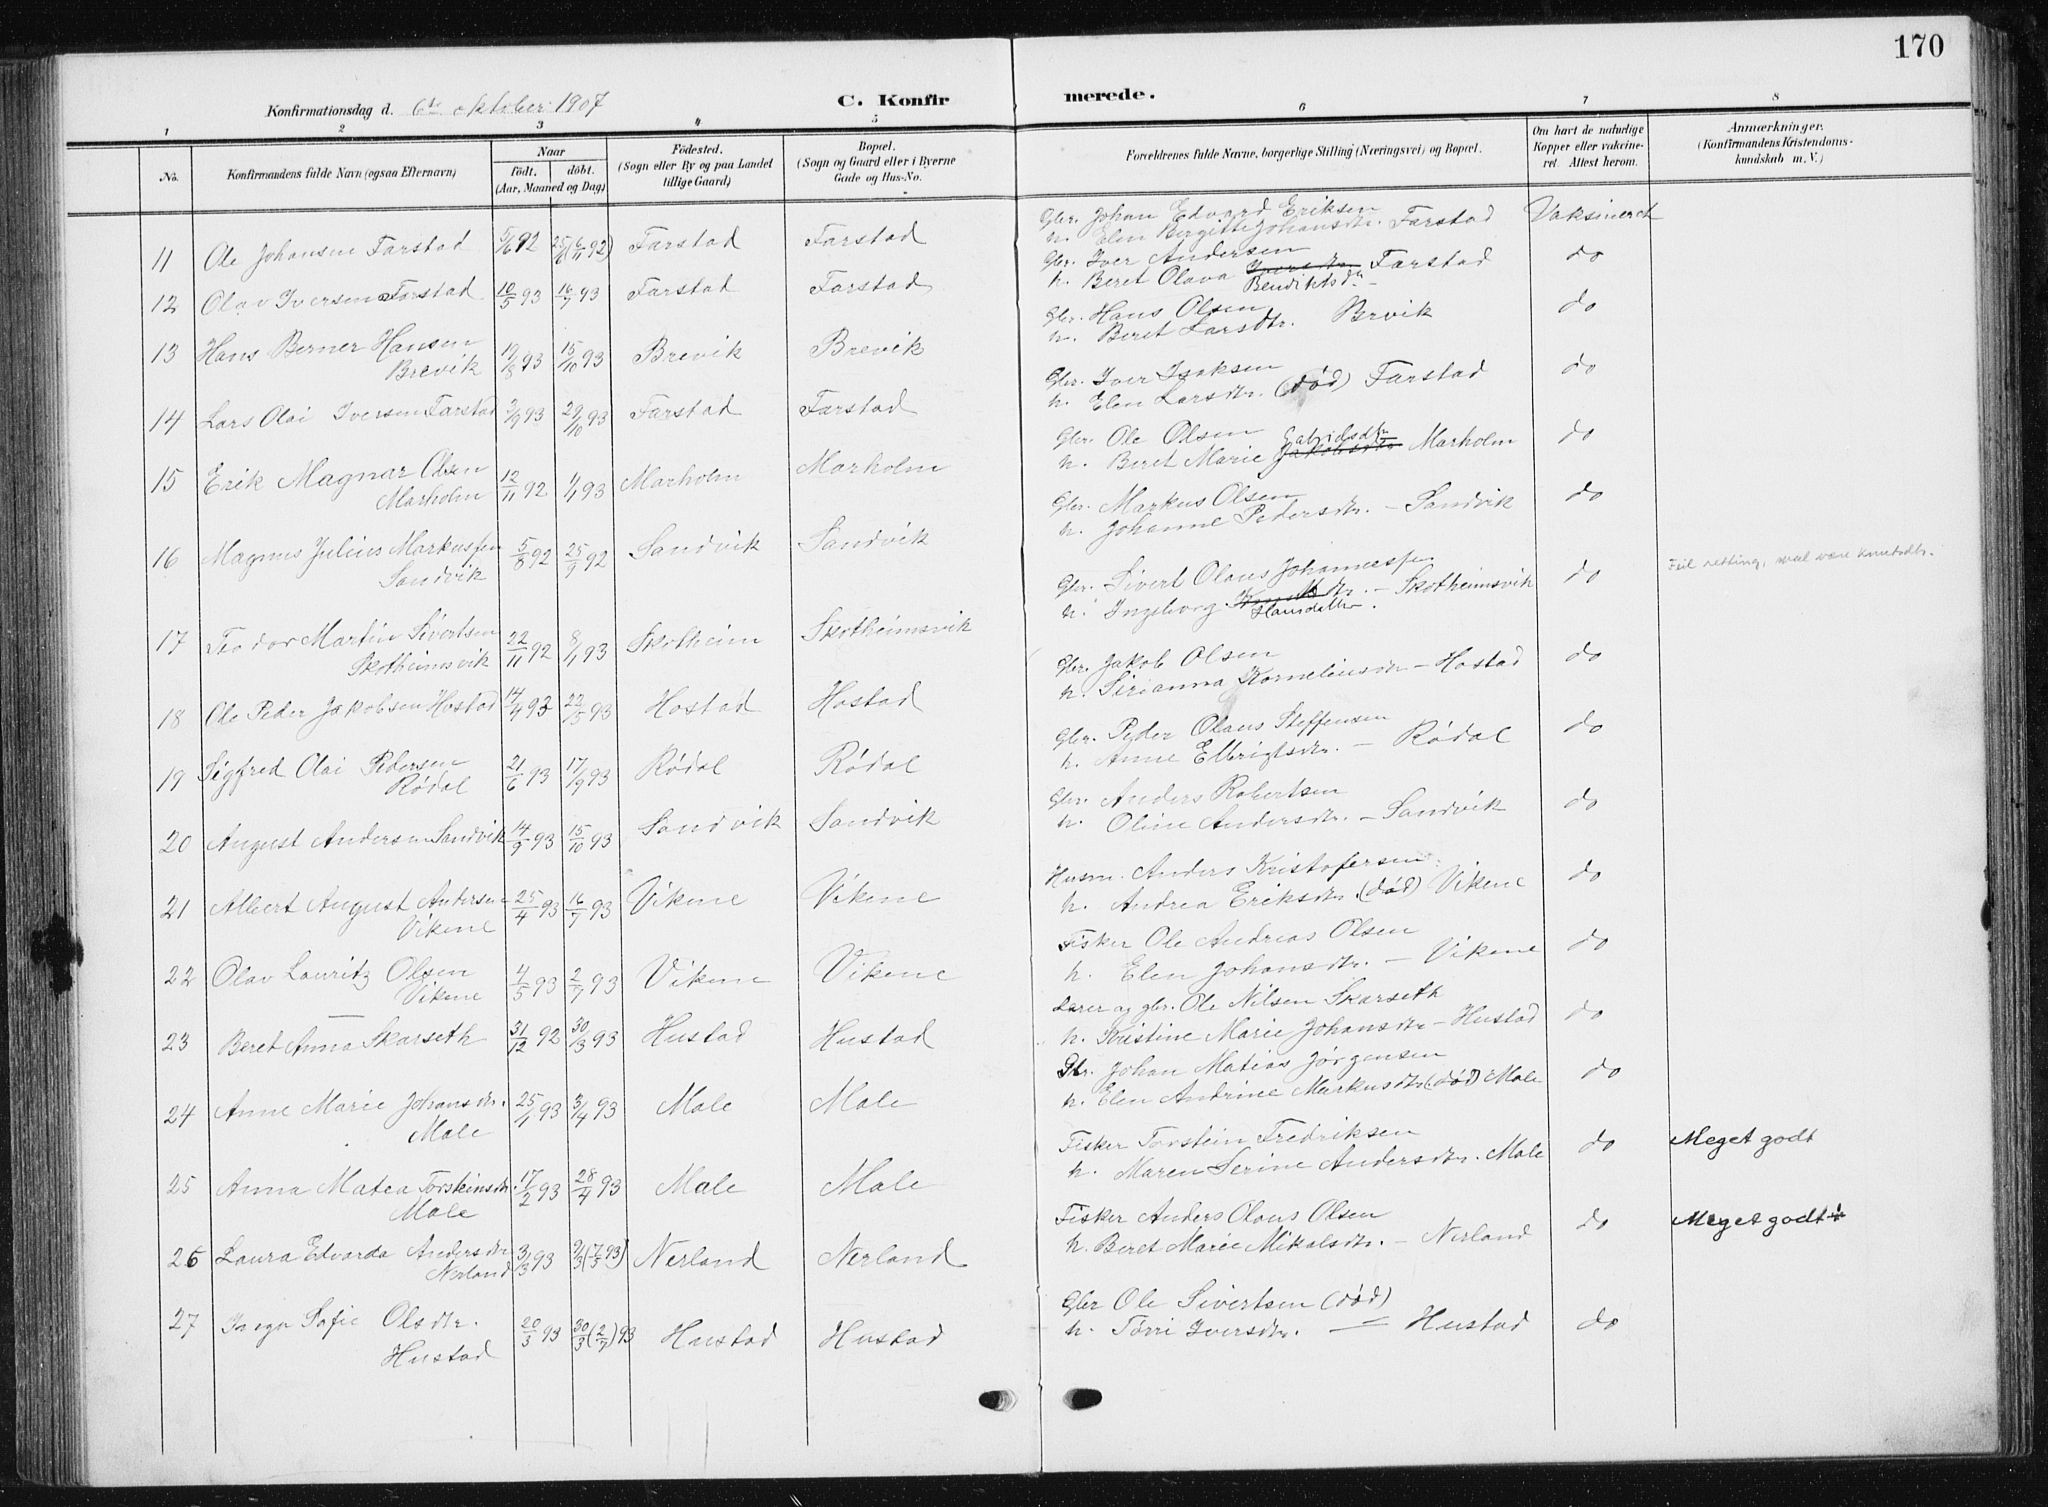 170
Konfirmationsdag d. 6te oktober 1907
C. Konfirmerede.
1 2 3 4 5 6 7 8
No. Konfirmandens fulde Navn (ogsaa Efternavn) Naar födt. döbt. (Aar, Maaned og Dag) Födested. (Sogn eller By og paa Landet tillige Gaard) Bopæl. (Sogn og Gaard eller i Byerne Gade og Hus-No. Forældrenes fulde Navne, borgerlige Stilling (Næringsvei) og Bopæl. Om havt de naturlige Kopper eller vakcineret. Attest herom. Anmærkninger. (Konfirmandens Kristendomskundskab m. V.)
11 Ole Johansen Farstad 5/6 92 25/6 (6/11 92) Farstad Farstad Gbr. Johan Edvard Eriksen Vaksineret
h. Elen Birgitte Johansdtr. Farstad
12 Olav Iversen Farstad 10/5 93 16/7 93 Farstad Farstad Gbr. Iver Andersen do
h. Beret Olava Iversdtr Farstad
Bendiktsdtr
13 Hans Berner Hansen 19/8 93 15/10 93 Brevik Brevik Gbr. Hans Olsen do
Brevik h. Beret Larsdtr. Brvik
14 Lars Olai Iversen Farstad 3/9 93 29/10 93 Farstad Farstad Gbr. Iver Isaksen do
h. Elen Larsdtr. (död) Farstad
15 Erik Magnar Olsen 12/11 92 1/1 93 Marholm Marholm Gbr. Ole Olsen do
Marholm Gabrielsdtr
h. Beret Marie Jakobsdtr Marholm
16 Magnus Julius Markussen 5/8 92 25/9 92 Sandvik Sandvik Gbr. Markus Olsen do
Sandvik h. Johanne Pedersdtr. - Sandvik
17 Teodor Martin Sivertsen 22/11 92 8/1 93 Skotheim Skotheimsvik Gbr. Sivert Olaus Johannessen do Feil retting, skal være Knutsdtr.
Skotheimsvik h. Ingeborg Knutsdtr. - Skotheimsvik
Hansdatter.
18 Ole Peder Jakobsen Hostad 14/4 93 22/5 93 Hostad Hostad Gbr. Jakob Olsen do
h. Sirianna Korneliusdtr - Hostad
19 Sigfred Olai Pedersen 21/6 93 17/9 93 Rödal Rödal Gbr. Peder Olaus Steffensen do
Rödal h. Anne Elbrigtsdtr. - Rödal
20 August Andersen Sandvik 14/9 93 15/10 93 Sandvik Sandvik Gbr. Anders Robertsen do
h. Oline Andersdtr. - Sandvik
21 Albert August Andersen 25/4 93 16/7 93 Vikene Vikene Husm. Anders Kristofersen do
Vikene h. Andrea Eriksdtr. (död) Vikene
22 Olav Lauritz Olsen 4/5 93 2/7 93 Vikene Vikene Fisker Ole Andreas Olsen do
Vikene h. Elen Johansdtr. - Vikene
23 Beret Anna Skarseth 31/12 92 30/3 93 Hustad Hustad Lærer og gbr. Ole Nilsen Skarseth do
h. Kristine Marie Johansdtr - Hustad
24 Anne Marie Johansdtr. 25/1 93 3/4 93 Male Male Gbr. Johan Matias Jörgensen do
Male h. Elen Andrine Markusdtr (död) Male
25 Anna Matea Torsteinsdtr. 17/2 93 28/4 93 Male Male Fisker Torstein Fredriksen do Meget godt
Male h. Maren Serine Andersdtr. Male
26 Laura Edvarda Andersdtr 3/3 93 9/3 (7/5 93) Nerland Nerland Fisker Anders Olaus Olsen do Meget godt
Nerland h. Beret Marie Mikalsdtr. - Nerland
27 Inga Sofie Olsdtr. 20/3 93 30/3 (2/7) 93 Hustad Hustad Gbr Ole Sivertsen (död) do
Hustad h. Törri Iversdtr. - Hustad